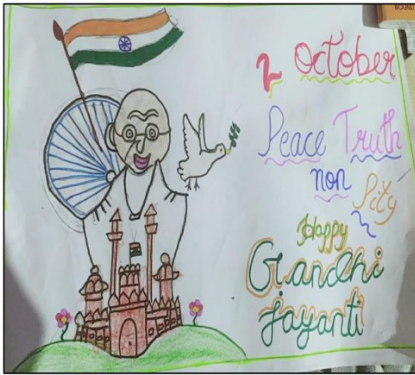 2 October
Peace Truth
non Pity
Happy
Gandhi
jayanti